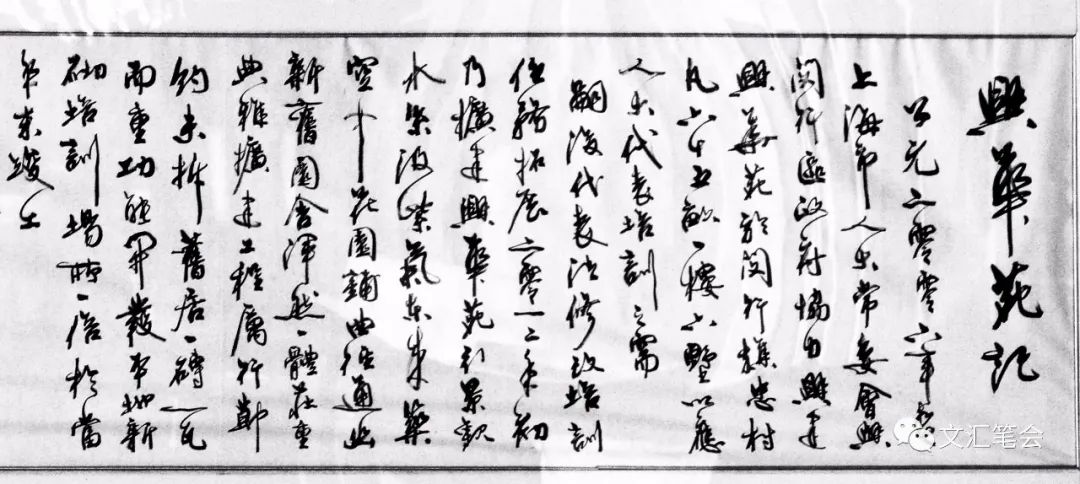 興華苑記
公元二零零六年春
上海市人大常委會與
閔行區政府協力興建
興華苑於閔行旗忠村
凡六十五畝一樓六墅以應
人大代表培訓之需
嗣後代表法修改培訓
任務拓展二零一二年初
乃擴建興華苑引景觀
水渠汲紫氣東來築
空中花園鋪曲徑通幽
新舊園舍渾然一體莊重
典雅擴建工程厲行節
約未拆舊居一磚一瓦
而重功能開發 地新
砌培訓場所一座於當
年末竣工
文汇笔会